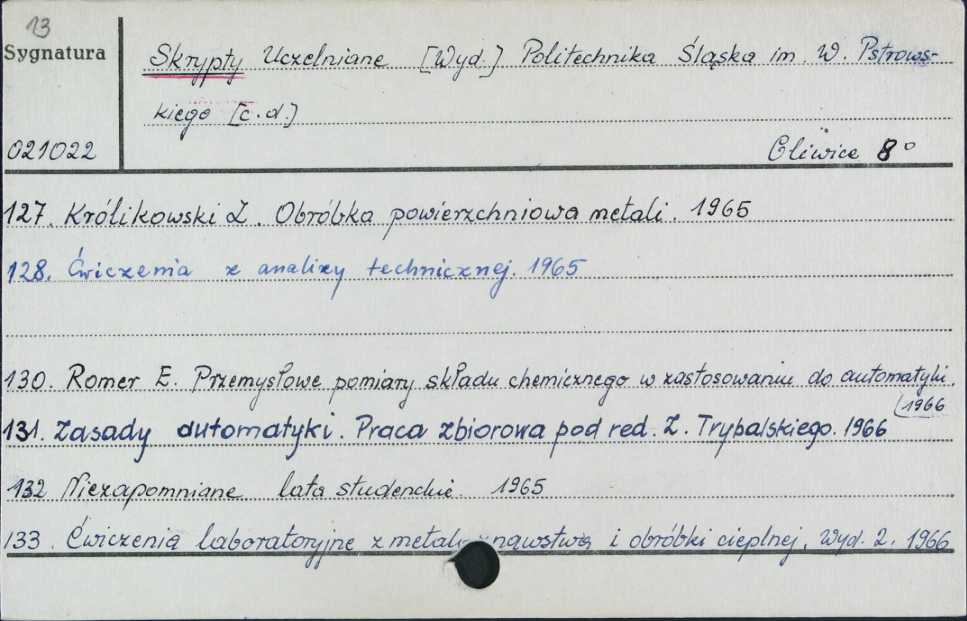 13
Sygnatura
Skrypty Uczelniane [Wyd.] Politechnika Śląska im. W. Pstrows-
kiego [c.d.]
021022
Gliwice 8°
127. Królikowski Z. Obróbka powierzchniowa metali. 1965
128. Ćwiczenia z analizy technicznej. 1965
130. Romer E. Przemysłowe pomiary składu chemicznego w zastosowaniu do automatyki.
1966
131. Zasady automatyki. Praca zbiorowa pod red. Z. Trybalskiego. 1966
132 Niezapomniane lata studenckie. 1965
133. Ćwiczenia laboratoryjne z metaloznawstwa i obróbki cieplnej. Wyd. 2. 1966